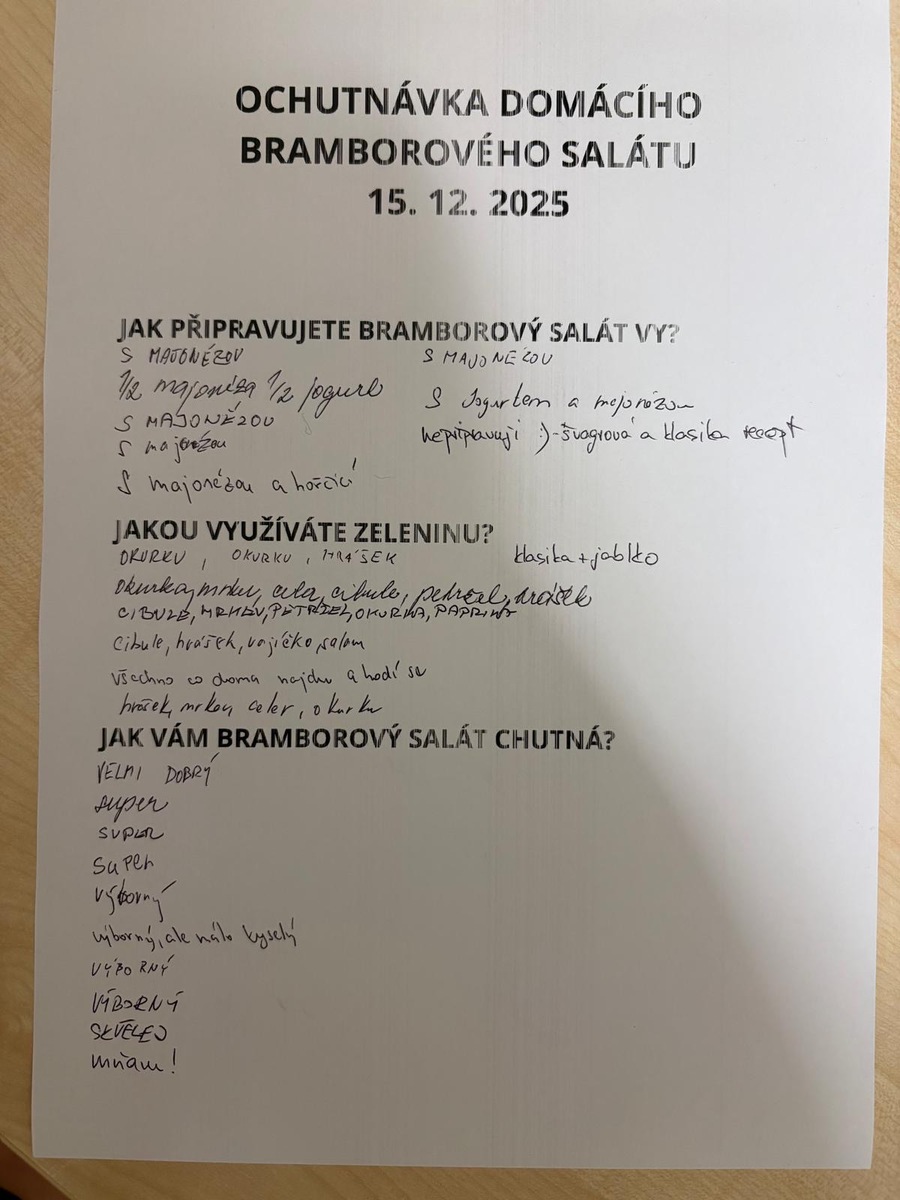 OCHUTNÁVKA DOMÁCÍHO
BRAMBOROVÉHO SALÁTU
15. 12. 2025
JAK PŘIPRAVUJETE BRAMBOROVÝ SALÁT VY?
S MAJONÉZOU
1/2 majonéza 1/2 jogurt
S MAJONÉZOU
S majonézou
S majonézou a hořčicí
S MAJONÉZOU
S Jogurtem a majonézou
nepřipravuji :)-švagrová a klasika recept
JAKOU VYUŽÍVÁTE ZELENINU?
OKURKU, OKURKU, HRÁŠEK
klasika + jablko
okurka, mrkev, cibule, petržel, hrášek
CIBULE, MRKEV, PETRŽEL, OKURKA, PAPRIKA
cibule, hrášek, vajíčko, salam
všechno co doma najdu a hodí se
hrášek, mrkev, celer, okurku
JAK VÁM BRAMBOROVÝ SALÁT CHUTNÁ?
VELMI DOBRÝ
super
SUPER
SUPER
výborný
výborný, ale málo kyselý
VÝBORNÝ
VÝBORNÝ
SKVĚLEJ
mňam!